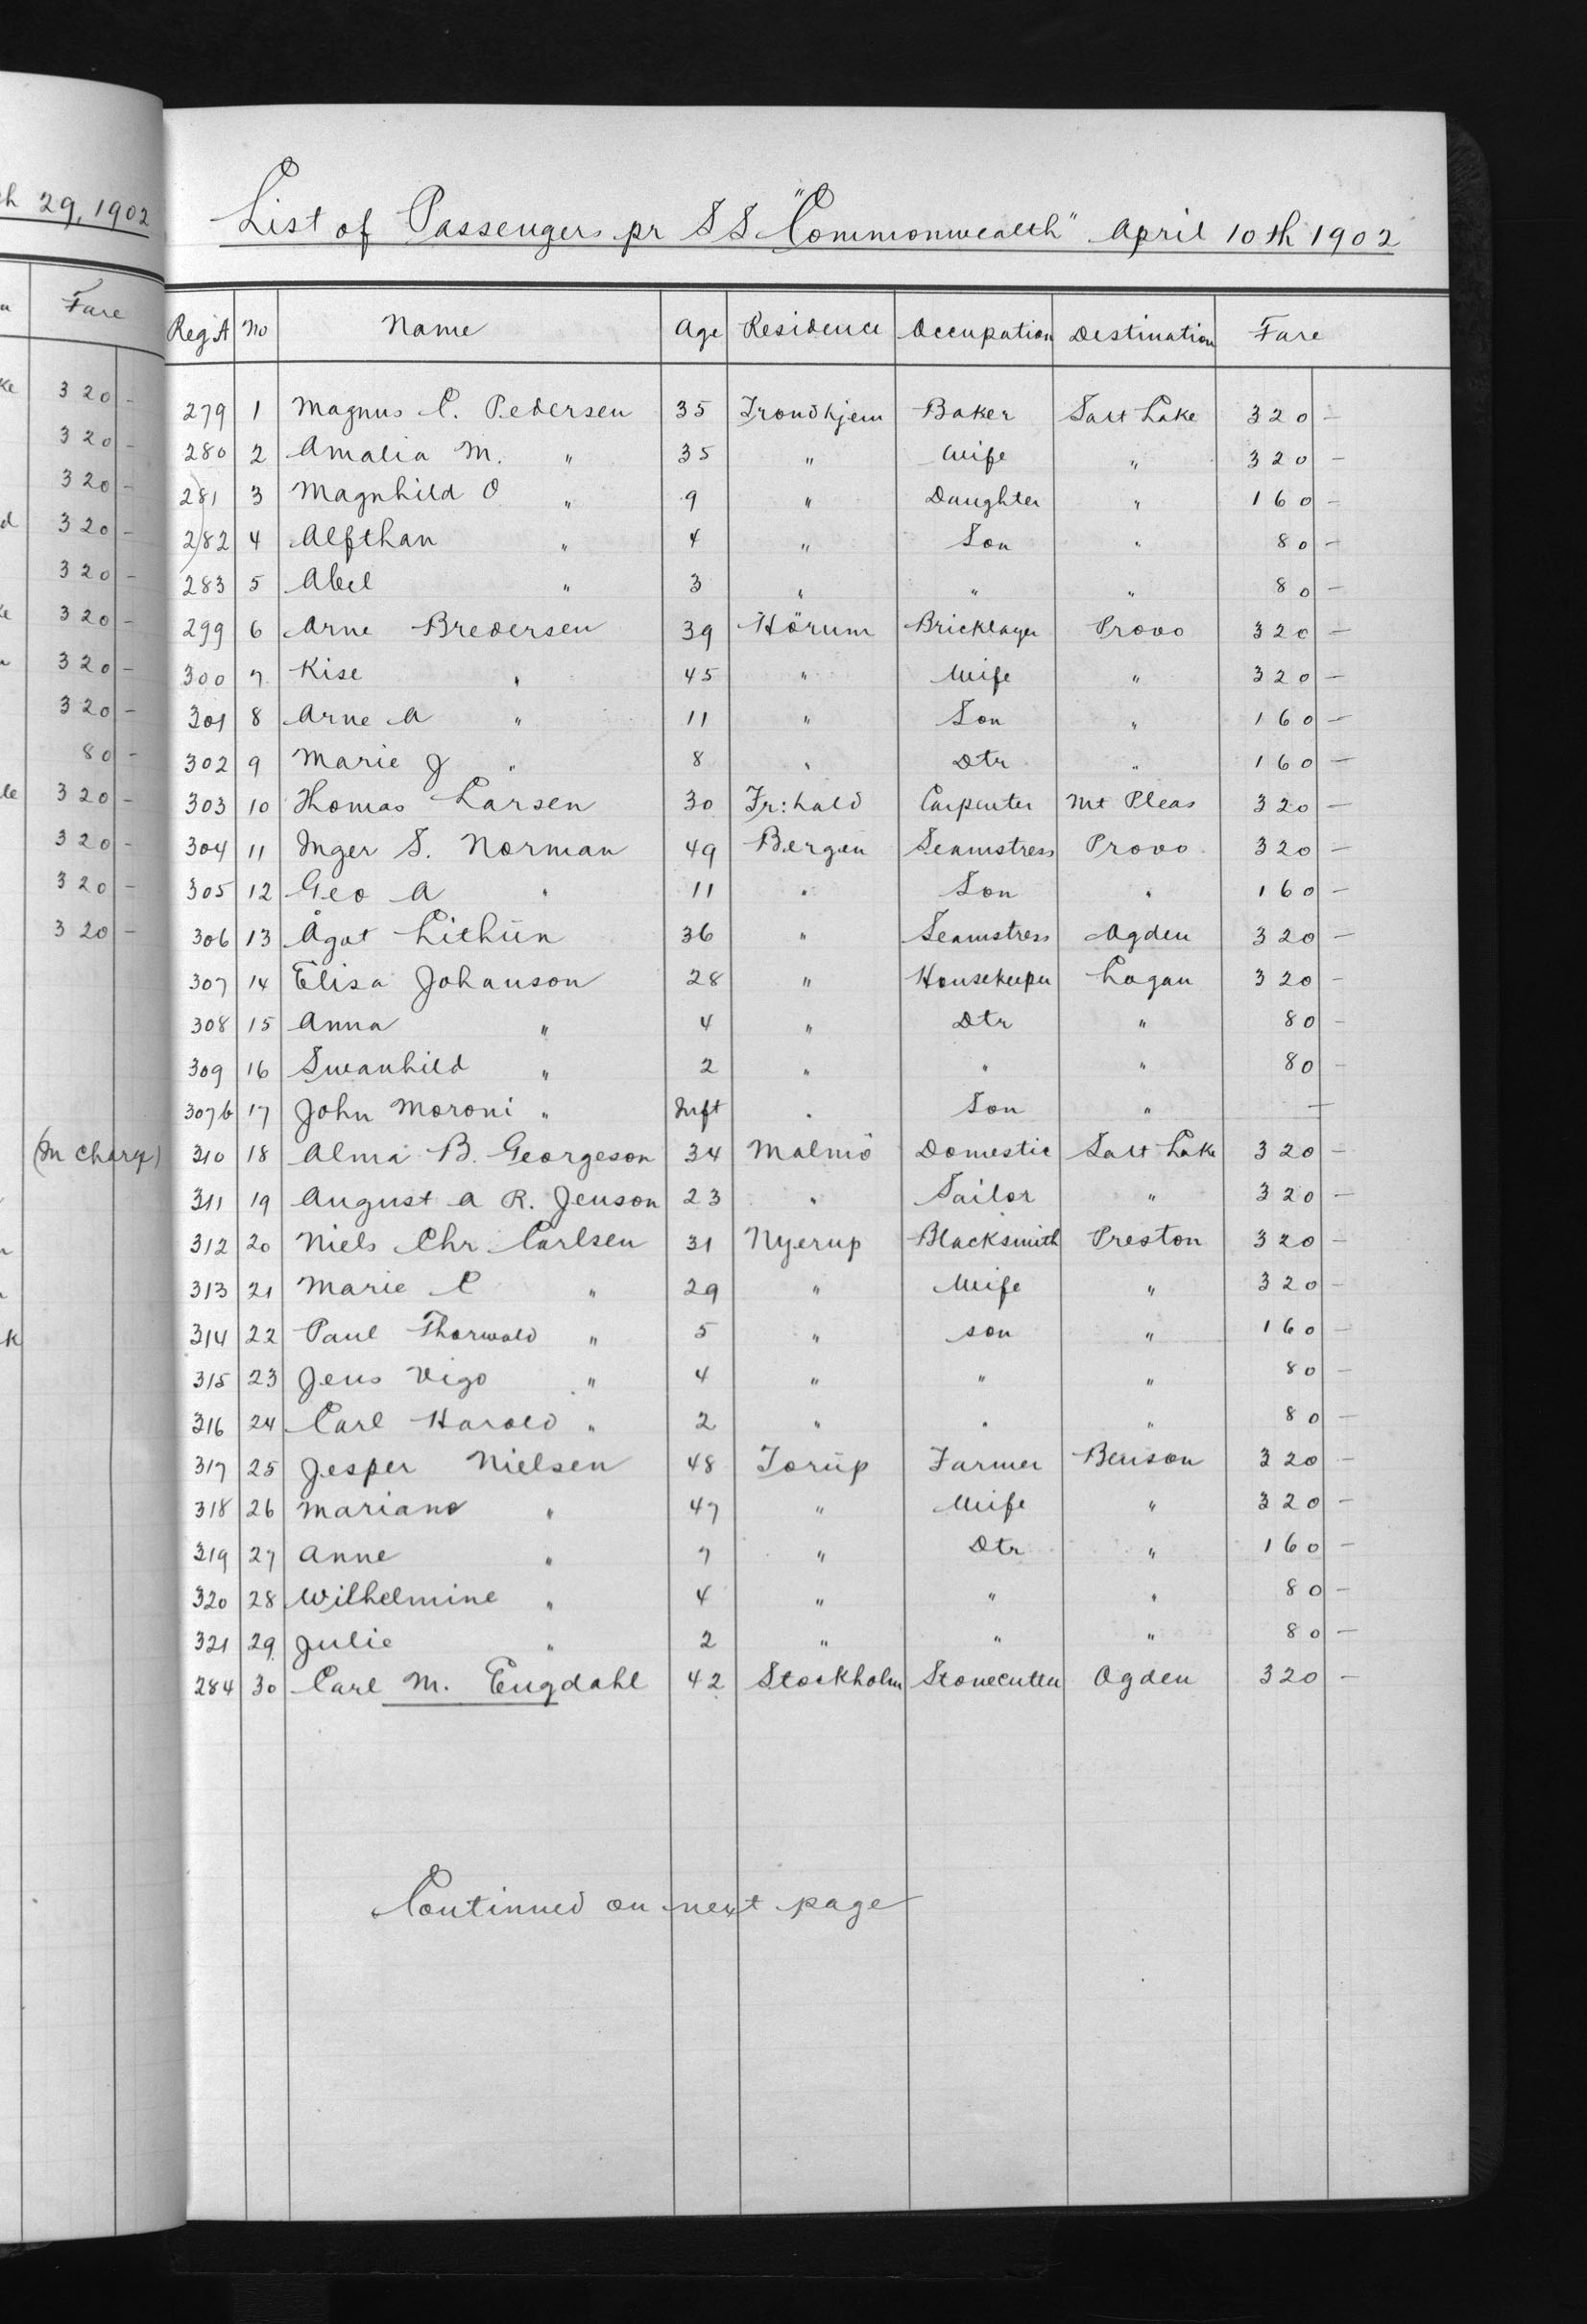 h 29, 1902
Fare
320 -
320 -
320 -
320 -
320 -
320 -
320 -
320 -
80 -
320 -
320 -
320 -
320 -
(In charge)
List of Passengers pr S S "Commonwealth" April 10th 1902
Reg A No Name Age Residence Occupation Destination Fare
279 1 Magnus C. Pedersen 35 Trondhjem Baker Salt Lake 320 -
280 2 Amalia M. " 35 " Wife " 320 -
281 3 Magnhild O " 9 " Daughter " 160 -
282 4 Alfthan " 4 " Son " 80 -
283 5 Abel " 3 " " " 80 -
299 6 Arne Bredersen 39 Hörum Bricklayer Provo 320 -
300 7 Kise " 45 " Wife " 320 -
301 8 Arne A " 11 " Son " 160 -
302 9 Marie J " 8 " Dtr " 160 -
303 10 Thomas Larsen 30 Fr:hald Carpenter Mt Pleas 320 -
304 11 Inger S. Norman 49 Bergen Seamstress Provo 320 -
305 12 Geo A " 11 " Son " 160 -
306 13 Ågot Lithün 36 " Seamstress Ogden 320 -
307 14 Elisa Johanson 28 " Housekeeper Logan 320 -
308 15 Anna " 4 " Dtr " 80 -
309 16 Swanhild " 2 " " " 80 -
307b 17 John Moroni " Inft " Son " -
310 18 Alma B. Georgeson 34 Malmö Domestic Salt Lake 320 -
311 19 August A R. Jenson 23 " Sailor " 320 -
312 20 Niels Chr Carlsen 31 Nyerup Blacksmith Preston 320 -
313 21 Marie C " 29 " Wife " 320 -
314 22 Paul Thorwald " 5 " son " 160 -
315 23 Jens Vigo " 4 " " " 80 -
316 24 Carl Harold " 2 " " " 80 -
317 25 Jesper Nielsen 48 Torüp Farmer Benson 320 -
318 26 Mariane " 47 " Wife " 320 -
319 27 Anne " 7 " Dtr " 160 -
320 28 Wilhelmine " 4 " " " 80 -
321 29 Julie " 2 " " " 80 -
284 30 Carl M. Engdahl 42 Stockholm Stonecutter Ogden 320 -
Continued on next page